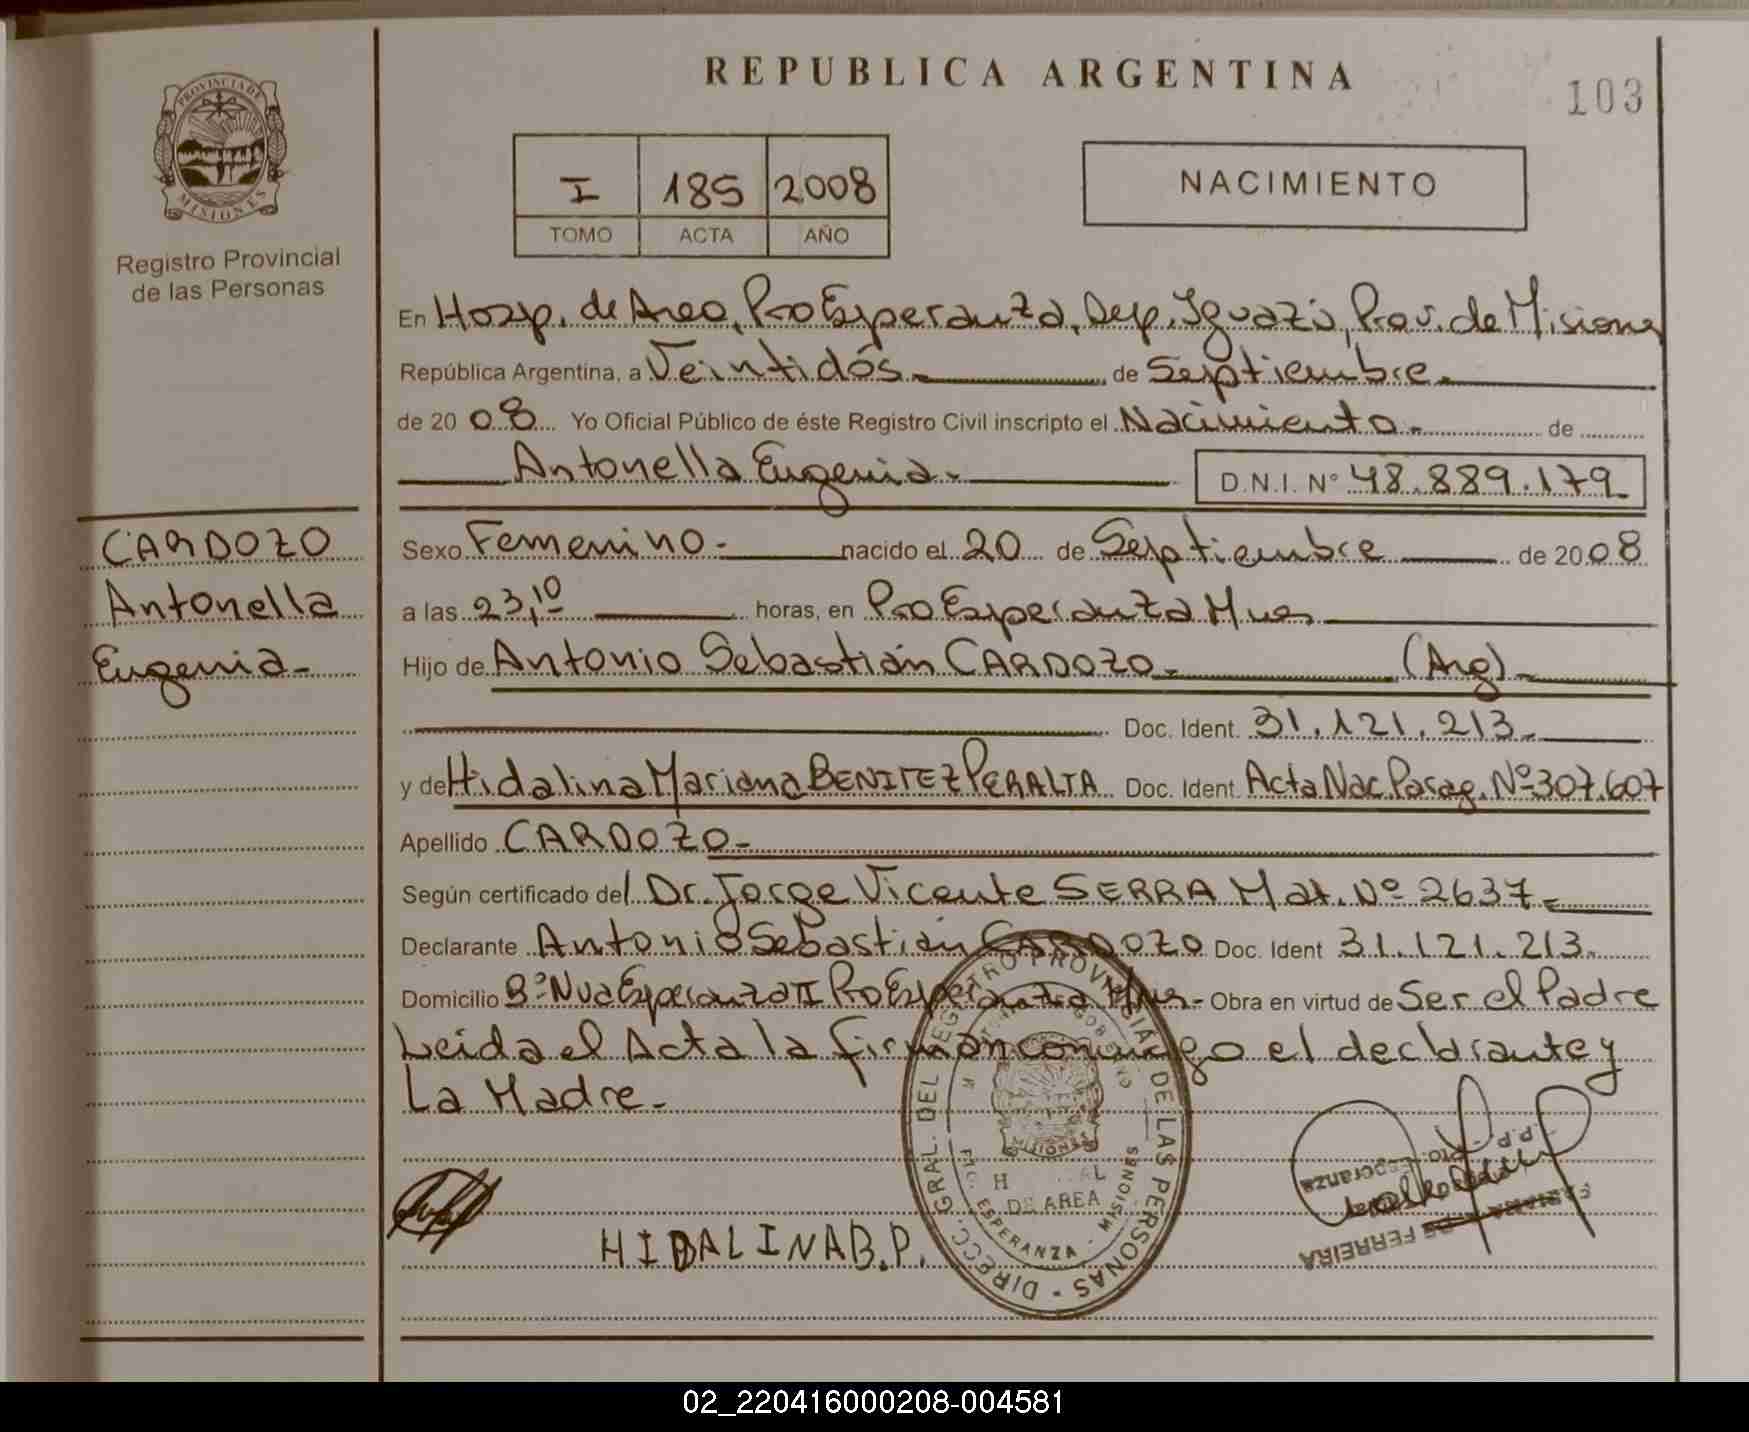 REPUBLICA ARGENTINA
103
PROVINCIA DE
MISIONES
Registro Provincial
de las Personas
I 185 2008
TOMO ACTA AÑO
NACIMIENTO
En Hosp. de Area, Pto Esperanza, Dep. Iguazú, Prov. de Misiones
República Argentina, a Veintidós.- de Septiembre.
de 20 08 Yo Oficial Público de éste Registro Civil inscripto el Nacimiento.- de
Antonella Eugenia.- D.N.I. Nº 48.889.179
CARDOZO
Antonella
Eugenia-
Sexo Femenino.- nacido el 20 de Septiembre de 20 08
a las 23,10 horas, en Pto Esperanza Mnes
Hijo de Antonio Sebastián CARDOZO.- (Arg).-
Doc. Ident. 31.121.213.-
y de Hidalina Mariana BENITEZ PERALTA Doc. Ident. Acta Nac. Parag. Nº 307.607
Apellido CARDOZO-
Según certificado del Dr. Jorge Vicente SERRA Mat. Nº 2637.-
Declarante Antonio Sebastián CARDOZO Doc. Ident 31.121.213.
Domicilio Bº Nva Esperanza II Pto Esperanza Mnes- Obra en virtud de Ser el Padre
Leida el Acta la firman conmigo el declarante y
La Madre.-
HIDALINA B.P.
DIRECC. GRAL. DEL REGISTRO PROVINCIAL DE LAS PERSONAS
DE AREA
PTO. ESPERANZA - MISIONES
Pto. Esperanza
DE FERREIRA
02_220416000208-004581